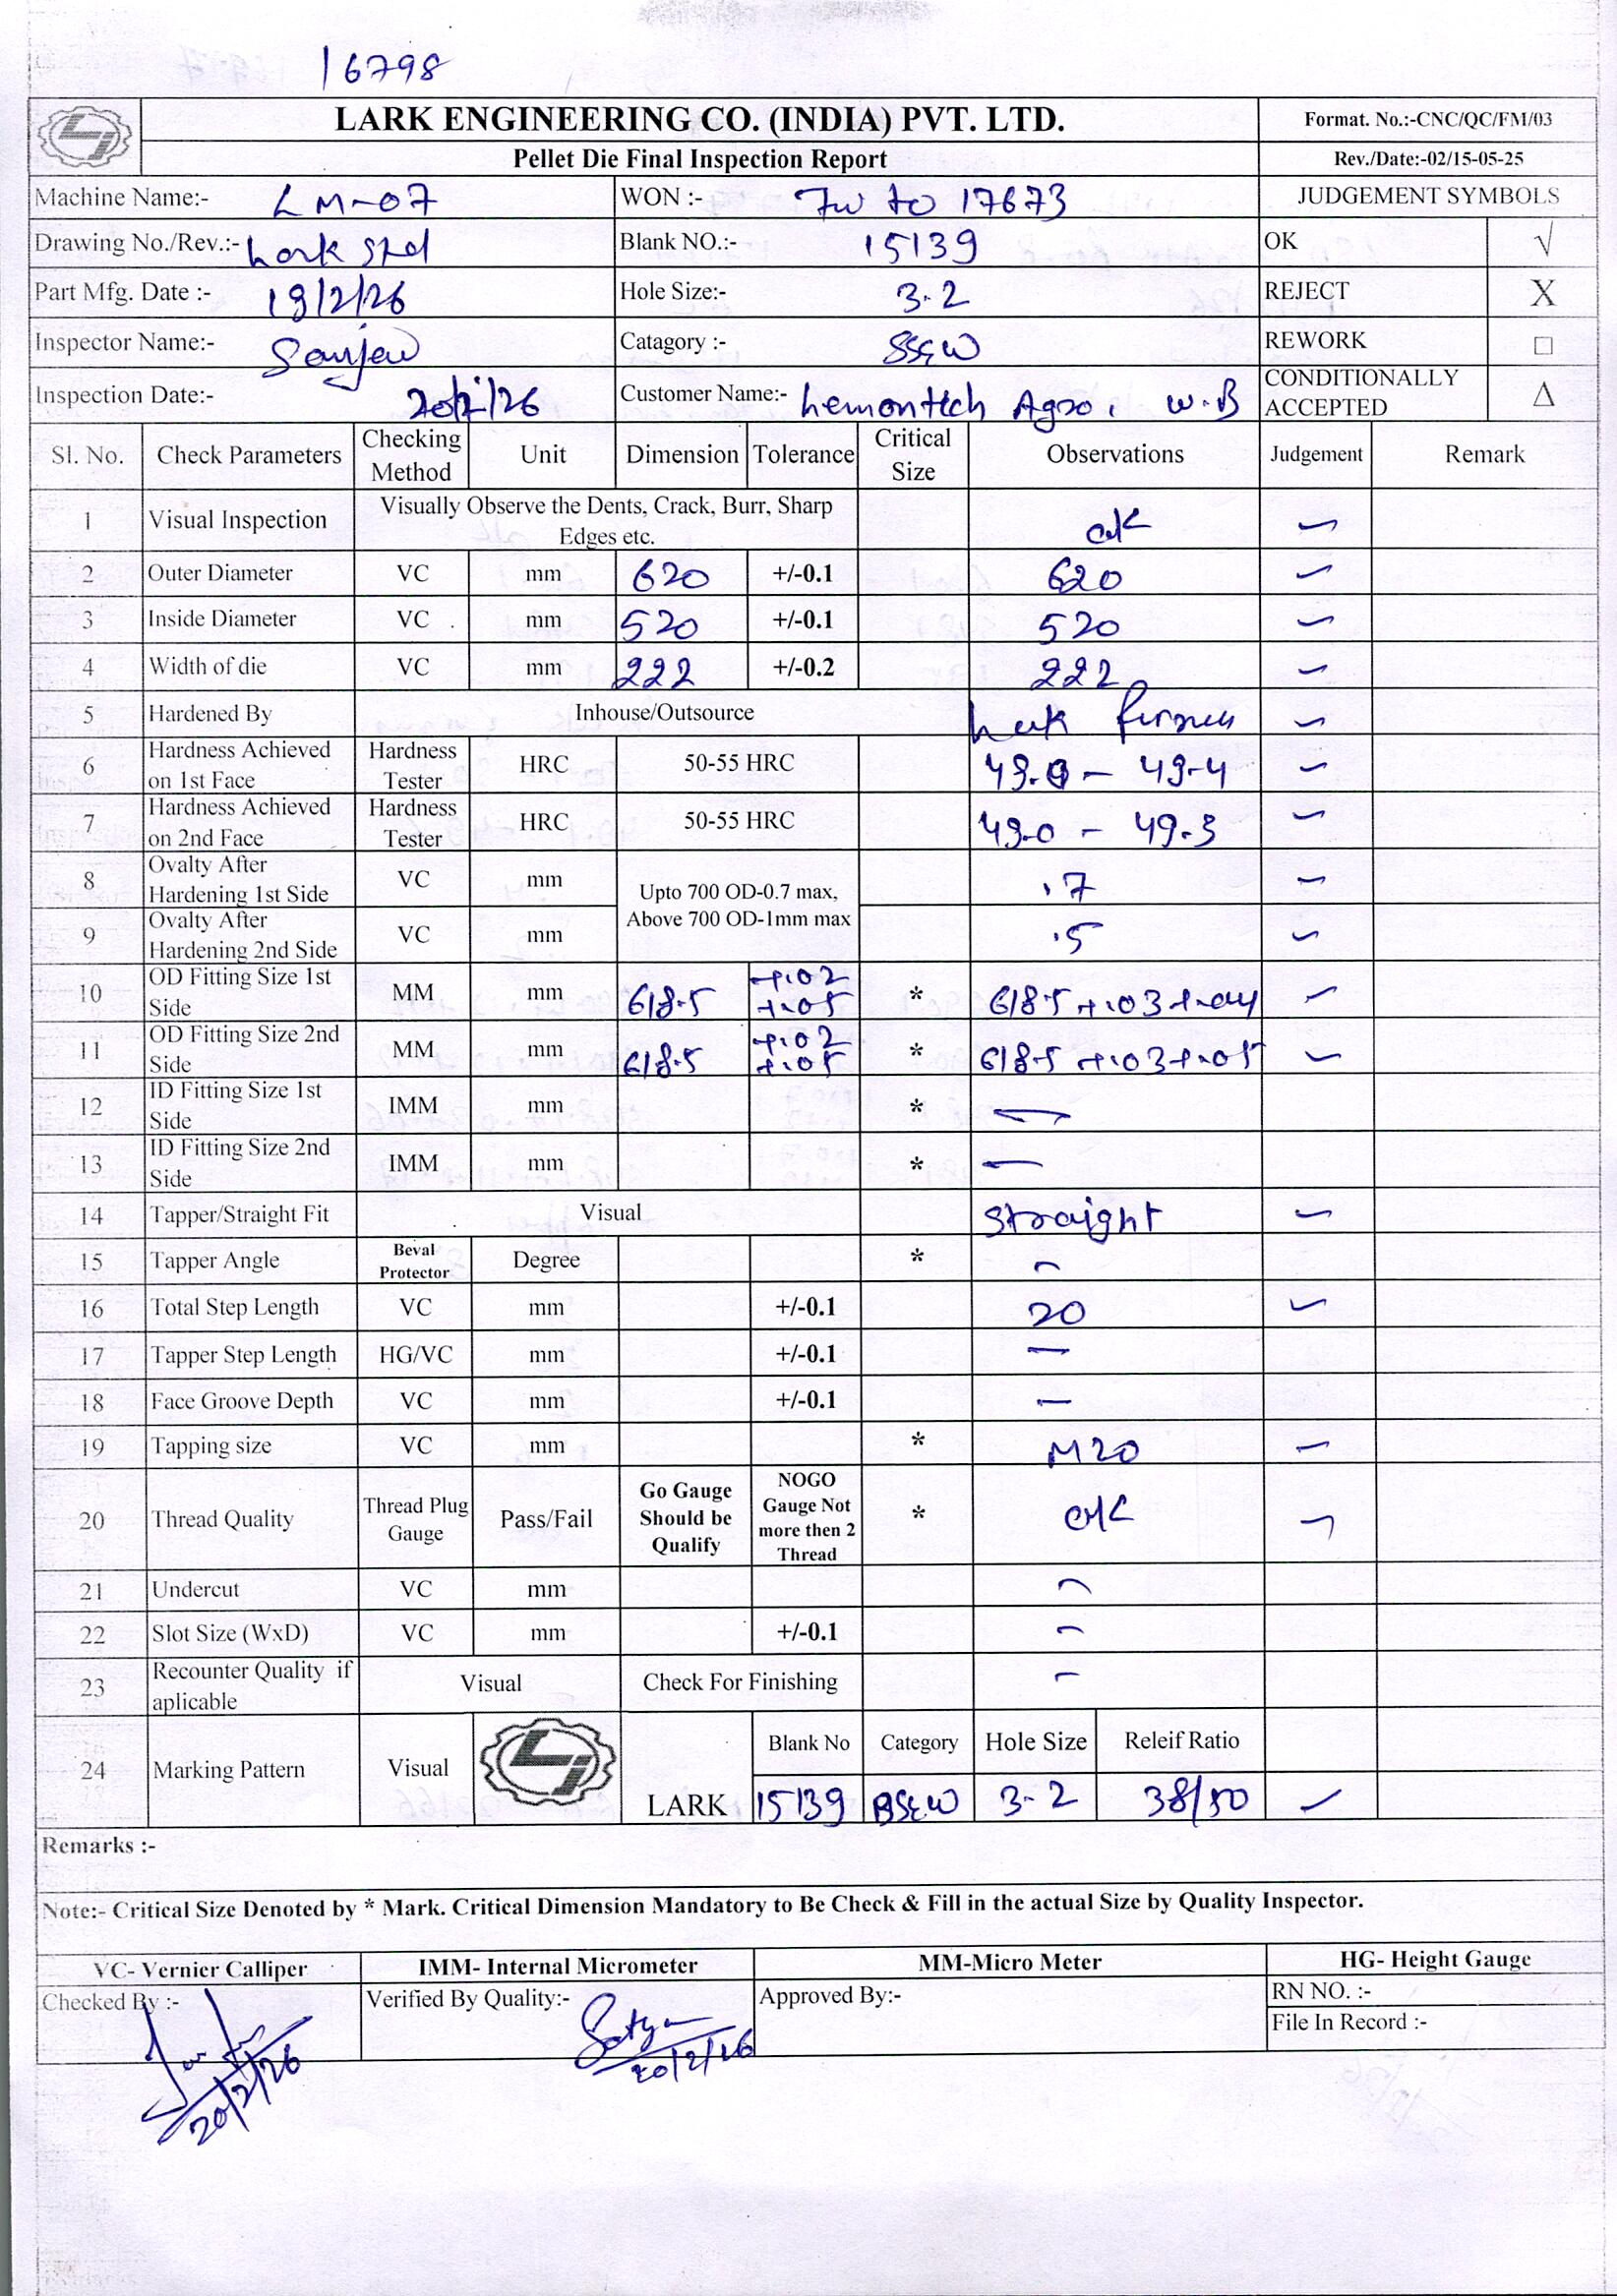 16798
LARK ENGINEERING CO. (INDIA) PVT. LTD.
Format. No.:-CNC/QC/FM/03
Pellet Die Final Inspection Report
Rev./Date:-02/15-05-25
Machine Name:- LM-07 WON :- TW to 17673 JUDGEMENT SYMBOLS
Drawing No./Rev.:- Lark Std Blank NO.:- 15139 OK √
Part Mfg. Date :- 19/2/26 Hole Size:- 3.2 REJECT X
Inspector Name:- Sanjew Catagory :- SS&W REWORK □
Inspection Date:- 20/2/26 Customer Name:- Lemontech Agro, W.B CONDITIONALLY ACCEPTED Δ
Sl. No. Check Parameters Checking Method Unit Dimension Tolerance Critical Size Observations Judgement Remark
1 Visual Inspection Visually Observe the Dents, Crack, Burr, Sharp Edges etc. ok ✓
2 Outer Diameter VC mm 620 +/-0.1 620 ✓
3 Inside Diameter VC . mm 520 +/-0.1 520 ✓
4 Width of die VC mm 222 +/-0.2 222 ✓
5 Hardened By Inhouse/Outsource ✓
6 Hardness Achieved on 1st Face Hardness Tester HRC 50-55 HRC 49.0 - 49.4 ✓
7 Hardness Achieved on 2nd Face Hardness Tester HRC 50-55 HRC 49.0 - 49.3 ✓
8 Ovalty After Hardening 1st Side VC mm Upto 700 OD-0.7 max, Above 700 OD-1mm max .7 ✓
9 Ovalty After Hardening 2nd Side VC mm .5 ✓
10 OD Fitting Size 1st Side MM mm 618.5 +.02 +.05 * 618.5 +.03 +.04 ✓
11 OD Fitting Size 2nd Side MM mm 618.5 +.02 +.05 * 618.5 +.03 +.05 ✓
12 ID Fitting Size 1st Side IMM mm * —
13 ID Fitting Size 2nd Side IMM mm * —
14 Tapper/Straight Fit Visual Straight ✓
15 Tapper Angle Beval Protector Degree * —
16 Total Step Length VC mm +/-0.1 20 ✓
17 Tapper Step Length HG/VC mm +/-0.1 —
18 Face Groove Depth VC mm +/-0.1 —
19 Tapping size VC mm * M20 ✓
20 Thread Quality Thread Plug Gauge Pass/Fail Go Gauge Should be Qualify NOGO Gauge Not more then 2 Thread * OK ✓
21 Undercut VC mm —
22 Slot Size (WxD) VC mm +/-0.1 —
23 Recounter Quality if aplicable Visual Check For Finishing —
24 Marking Pattern Visual LARK Blank No Category Hole Size Releif Ratio
15139 BS&W 3.2 38/50 ✓
Remarks :-
Note:- Critical Size Denoted by * Mark. Critical Dimension Mandatory to Be Check & Fill in the actual Size by Quality Inspector.
VC- Vernier Calliper IMM- Internal Micrometer MM-Micro Meter HG- Height Gauge
Checked By :- Verified By Quality:- Satya Approved By:- RN NO. :-
File In Record :-
20/2/26 20/2/26